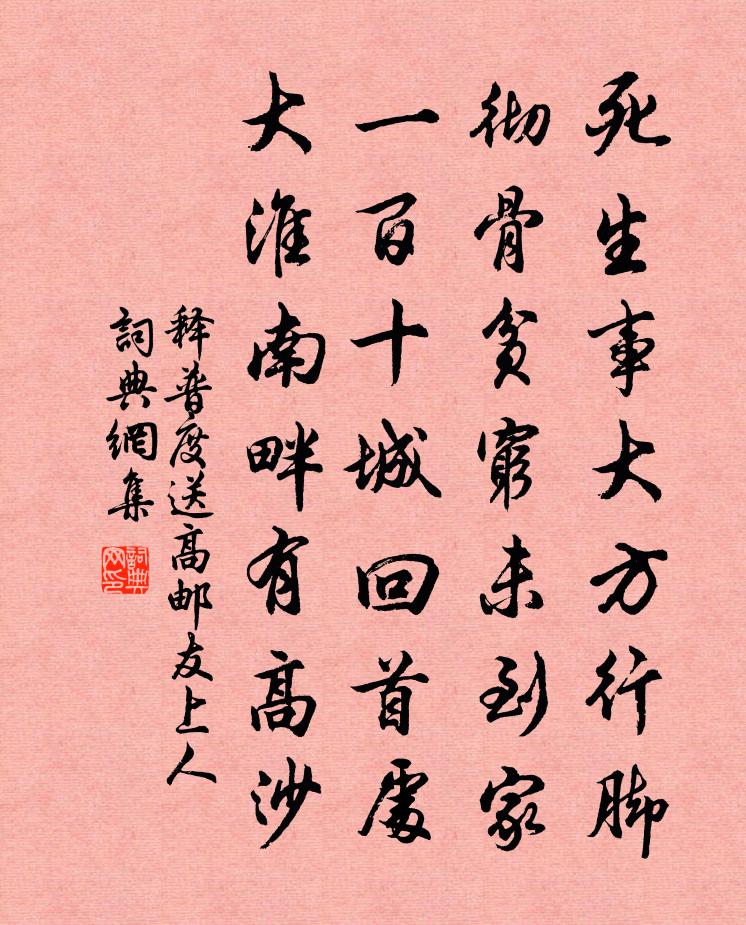 死生事大方行脚
彻骨贫穷未到家
一百十城回首處
大淮南畔有高沙
释普度送高邮友上人
詞典網集
詞典网印